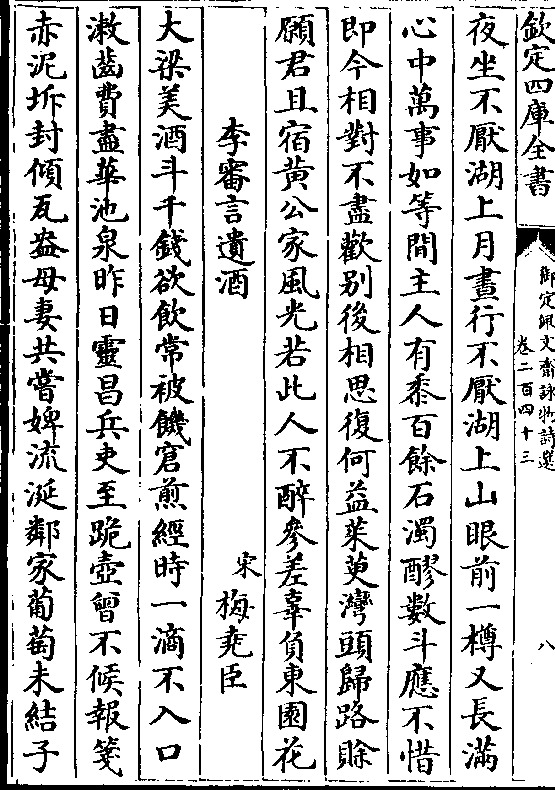 欽定四庫全書
御定佩文齋詠物詩選
卷二百四十三
八
夜坐不厭湖上月晝行不厭湖上山眼前一樽又長滿
心中萬事如等閒主人有黍百餘石濁醪數斗應不惜
即今相對不盡歡别後相思復何益茱萸灣頭歸路賒
願君且宿黄公家風光若此人不醉參差辜負東園花
李審言遺酒
宋梅堯臣
大梁美酒斗千錢欲飲常被饑窘煎經時一滴不入口
漱齒費盡華池泉昨日靈昌兵吏至跪壺曾不候報箋
赤泥坼封傾瓦盎母妻共嘗婢流涎鄰家葡萄未結子